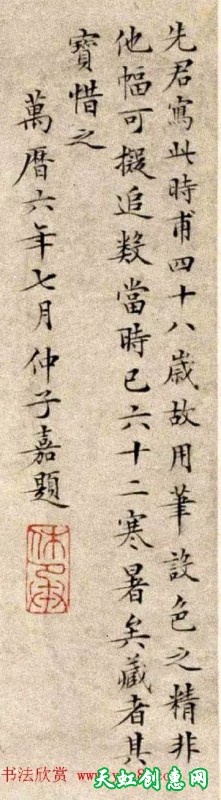 先君寫此時甫四十八歲故用筆設色之精非
他幅可擬追數當時已六十二寒暑矣藏者其
寶惜之
萬曆六年七月仲子嘉題
休承
书法欣赏
天虹创惠网